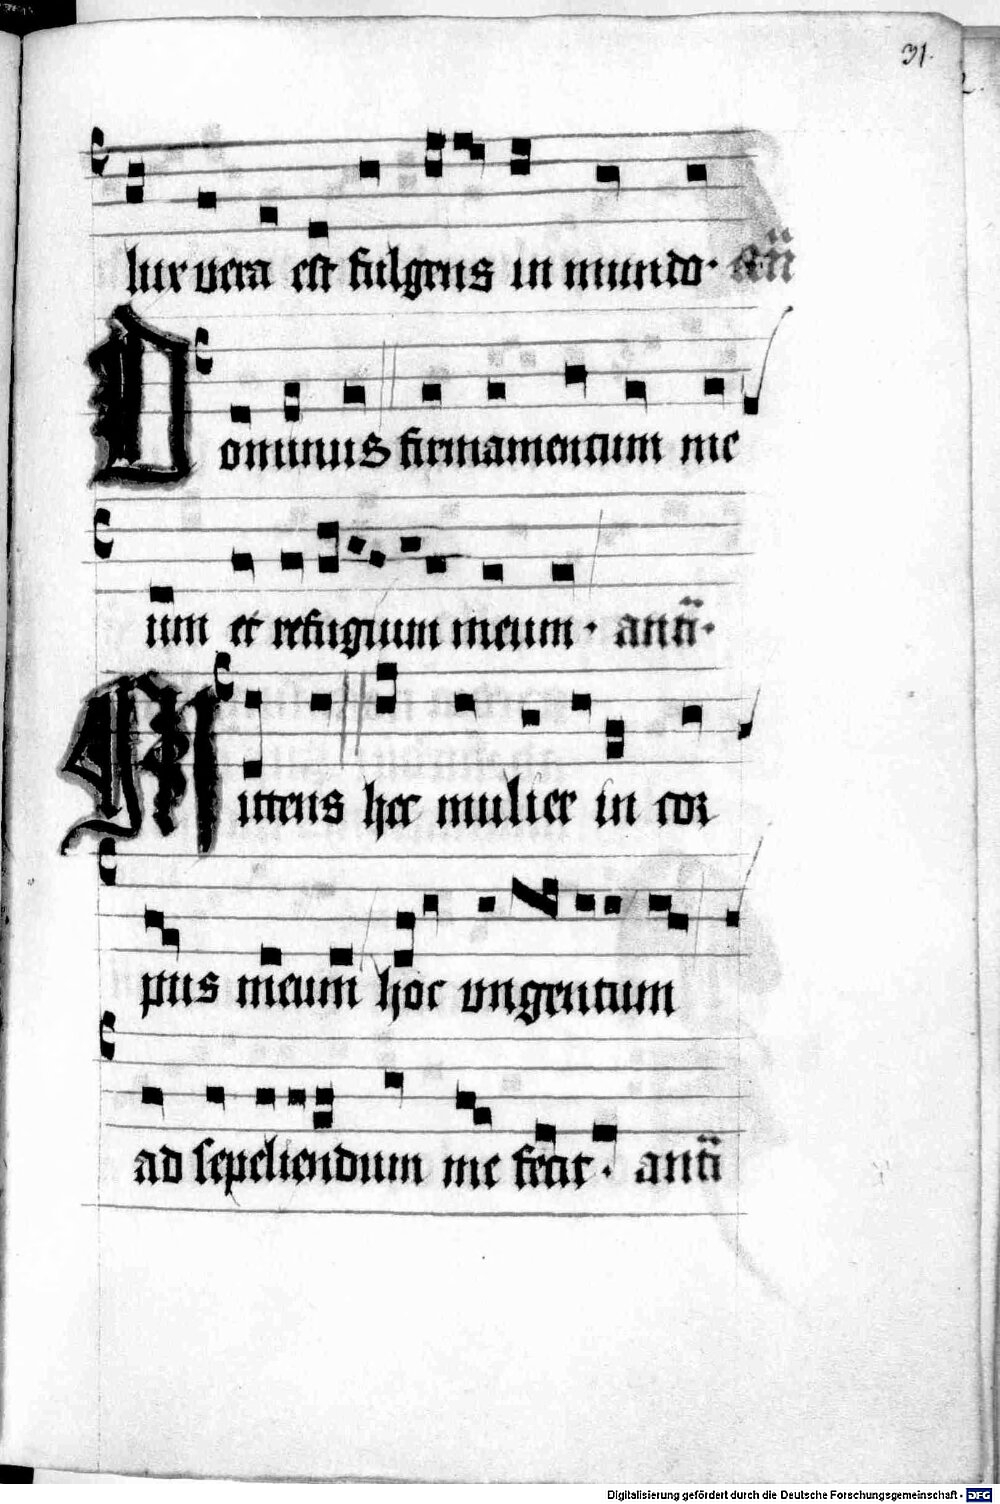 31.
lux vera est fulgens in mundo· an̄
Dominus firmamentum me
um et refugium meum· anti·
Mittens hec mulier in cor
pus meum hoc vngentum
ad sepeliendum me fecit· anti
Digitalisierung gefördert durch die Deutsche Forschungsgemeinschaft - DFG